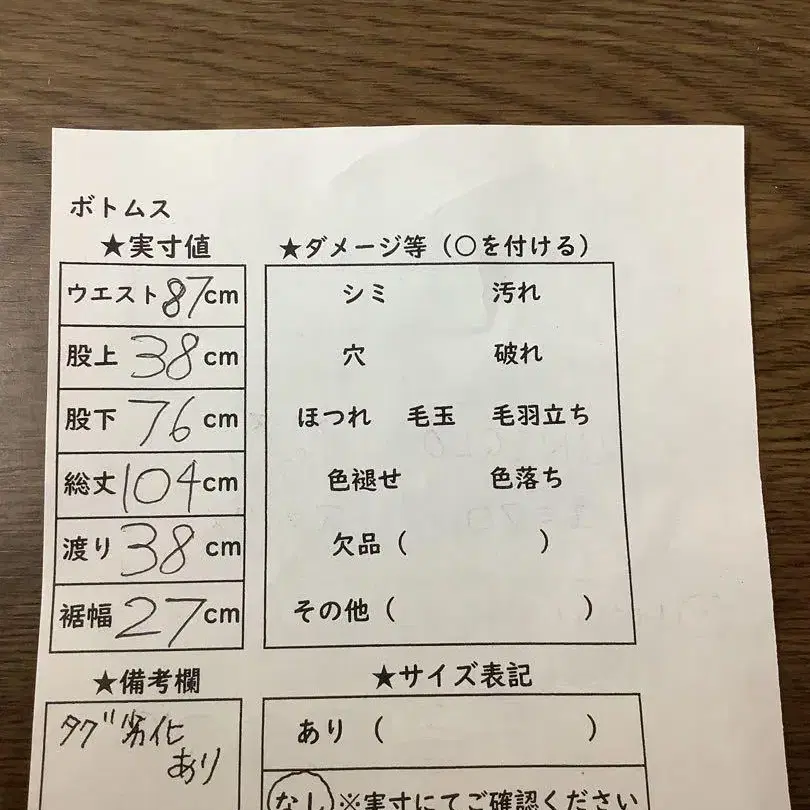 ボトムス
★実寸値
ウエスト87cm
股上38cm
股下76cm
総丈104cm
渡り38cm
裾幅27cm
★ダメージ等（○を付ける）
シミ 汚れ
穴 破れ
ほつれ 毛玉 毛羽立ち
色褪せ 色落ち
欠品（ ）
その他（ ）
★備考欄
タグ劣化
あり
★サイズ表記
あり（ ）
なし※実寸にてご確認ください